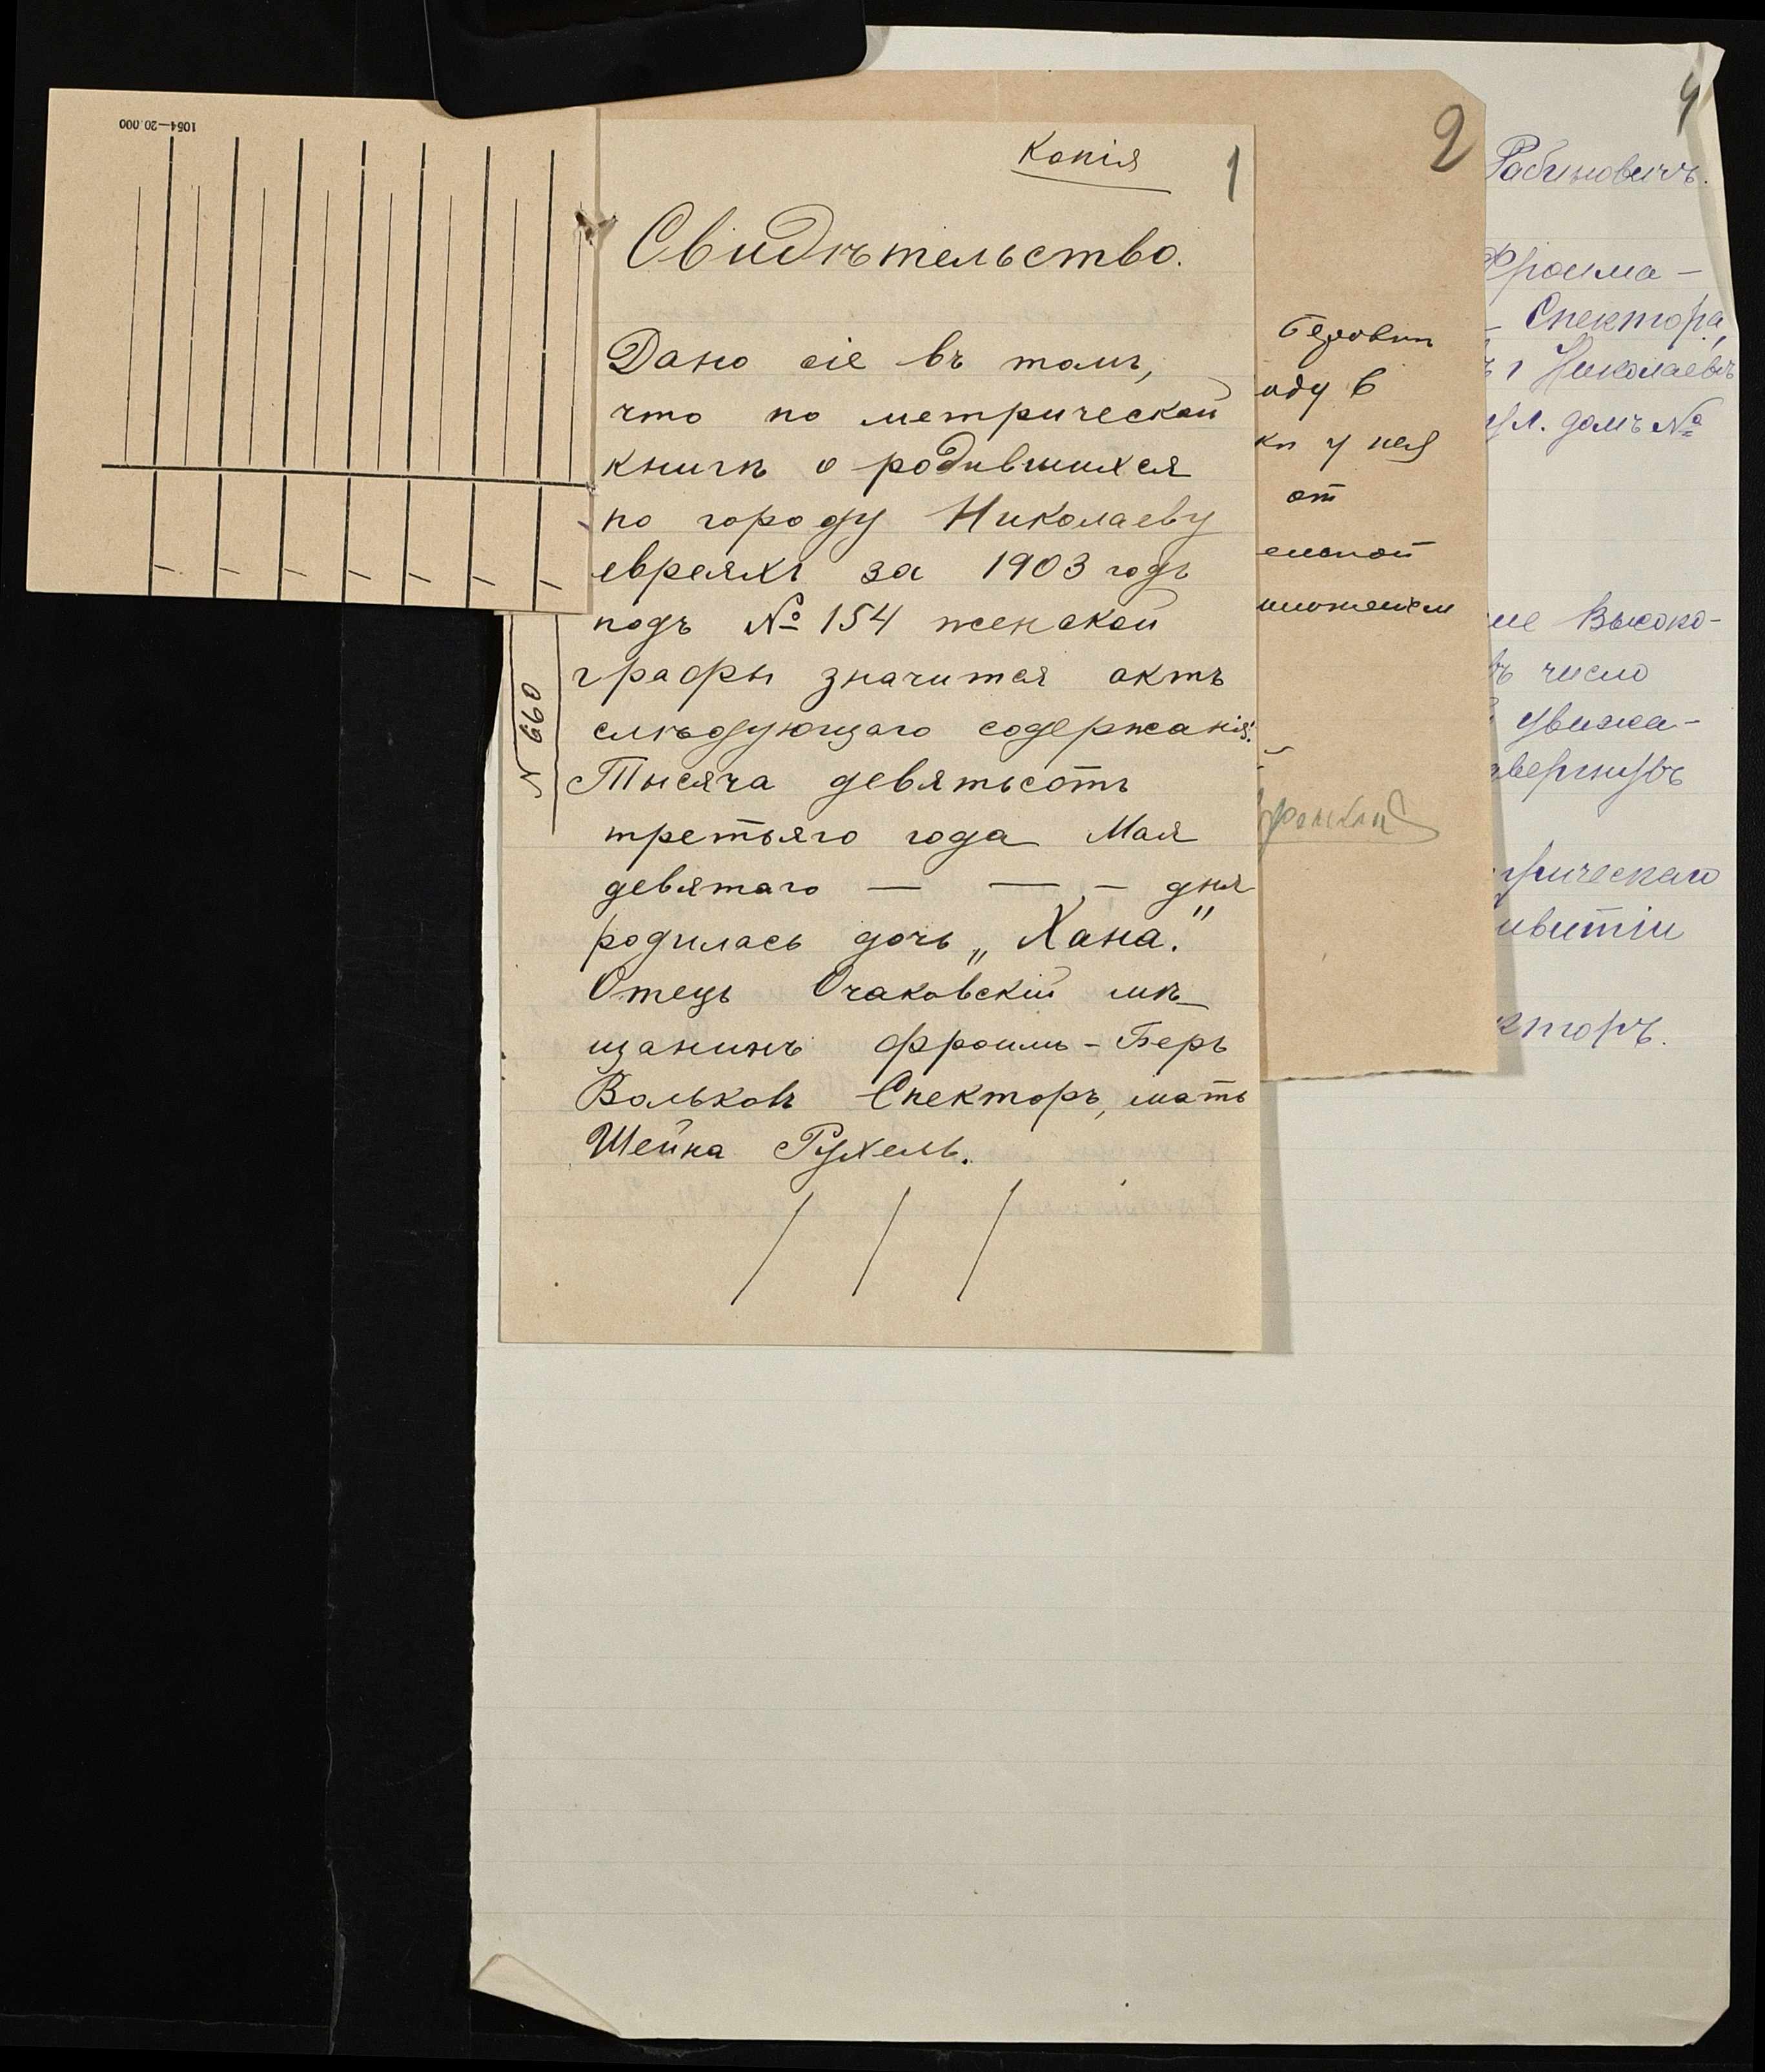 1054—20.000
Копія
1
Свидѣтельство.
Дано сіе въ томъ,
что по метрической
книгѣ о родившихся
по городу Николаеву
евреяхъ за 1903 годъ
подъ № 154 женской
графы значится актъ
слѣдующаго содержанія:
Тысяча девятьсотъ
третьяго года Мая
девятаго — — — дня
родилась дочь „Хана."
Отецъ Очаковскій мѣ-
щанинъ Фроимъ-Беръ
Вольковъ Спекторъ, мать
Шейна Рухель.
N 660
2
оду в
ки у ней
от
4
Рабиновичъ.
Фроима-
Спектора,
г Николаевъ
ул. домъ №
ие Высоко-
въ число
движа-
рическаго
кторъ.